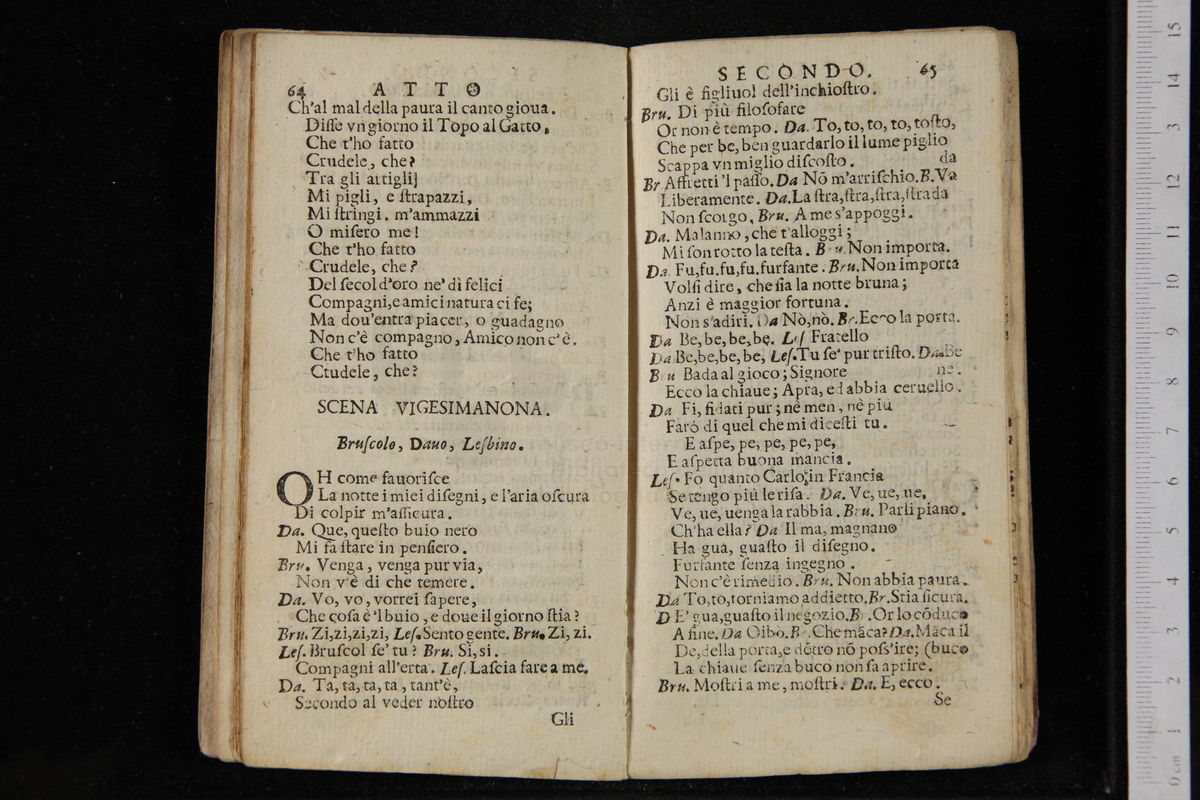 64 ATTO
Ch'al mal della paura il canto gioua.
Diſſe vn giorno il Topo al Gatto,
Che t'ho fatto
Crudele, che?
Tra gli artiglij
Mi pigli, e ſtrapazzi,
Mi ſtringi. m'ammazzi
O miſero me!
Che t'ho fatto
Crudele, che?
Del ſecol d'oro ne' dì felici
Compagni, e amici natura ci fe;
Ma dou'entra piacer, o guadagno
Non c'è compagno, Amico non c'è.
Che t'ho fatto
Ctudele, che?
SCENA VIGESIMANONA.
Bruſcolo, Dauo, Leſbino.
OH come fauoriſce
La notte i miei diſegni, e l'aria oſcura
Di colpir m'aſſicura.
Da. Que, queſto buio nero
Mi fa ſtare in penſiero.
Bru. Venga, venga pur via,
Non v'è di che temere.
Da. Vo, vo, vorrei ſapere,
Che coſa è 'l buio, e doue il giorno ſtia?
Bru. Zi, zi, zi, zi, Leſ. Sento gente. Bru. Zi, zi.
Leſ. Bruſcol ſe' tu? Bru. Sì, si.
Compagni all'erta. Leſ. Laſcia fare a me.
Da. Ta, ta, ta, ta, tant'è,
Secondo al veder noſtro
Gli
SECONDO. 65
Gli è figliuol dell'inchioſtro.
Bru. Di più filoſofare
Or non è tempo. Da. To, to, to, to, toſto,
Che per be, ben guardarlo il lume piglio
Scappa vn miglio diſcoſto. da
Br Affretti 'l paſſo. Da Nõ m'arriſchio. B. Va
Liberamente. Da. La ſtra, ſtra, ſtra, ſtrada
Non ſcorgo, Bru. A me s'appoggi.
Da. Malanno, che t'alloggi;
Mi ſon rotto la teſta. Bru. Non importa.
Da. Fu, fu. fu, fu. furfante. Bru. Non importa
Volſi dire, che ſia la notte bruna;
Anzi è maggior fortuna.
Non s'adiri. Da Nò, nò. Br. Ecco la porta.
Da Be, be, be, be. Leſ Fratello
Da Be, be, be, be, Leſ. Tu ſe' pur triſto. Da. Be
Bru Bada al gioco; Signore ne.
Ecco la chiaue; Apra, ed abbia ceruello.
Da Fi, fidati pur; nè men, nè più
Farò di quel che mi diceſti tu.
E aſpe, pe, pe, pe, pe,
E aſpetta buona mancia.
Leſ. Fo quanto Carlo, in Francia
Se tengo più le riſa. Da. Ve, ue, ue,
Ve, ue, uenga la rabbia. Bru. Parli piano.
Ch'ha ella? Da Il ma, magnano
Ha gua, guaſto il diſegno.
Furfante ſenza ingegno.
Non c'è rimedio. Bru. Non abbia paura.
Da To, to, torniamo addietto. Br. Stia ſicura.
D E' gua, guaſto il negozio. Br. Or lo cõduco
A fine. Da Oibò. Br. Che mãca? Da. Mãca il
De, della porta, e dẽtro nõ poſs'ire; (buco
La chiaue ſenza buco non ſa aprire.
Bru. Moſtri a me, moſtri. Da. E, ecco.
Se